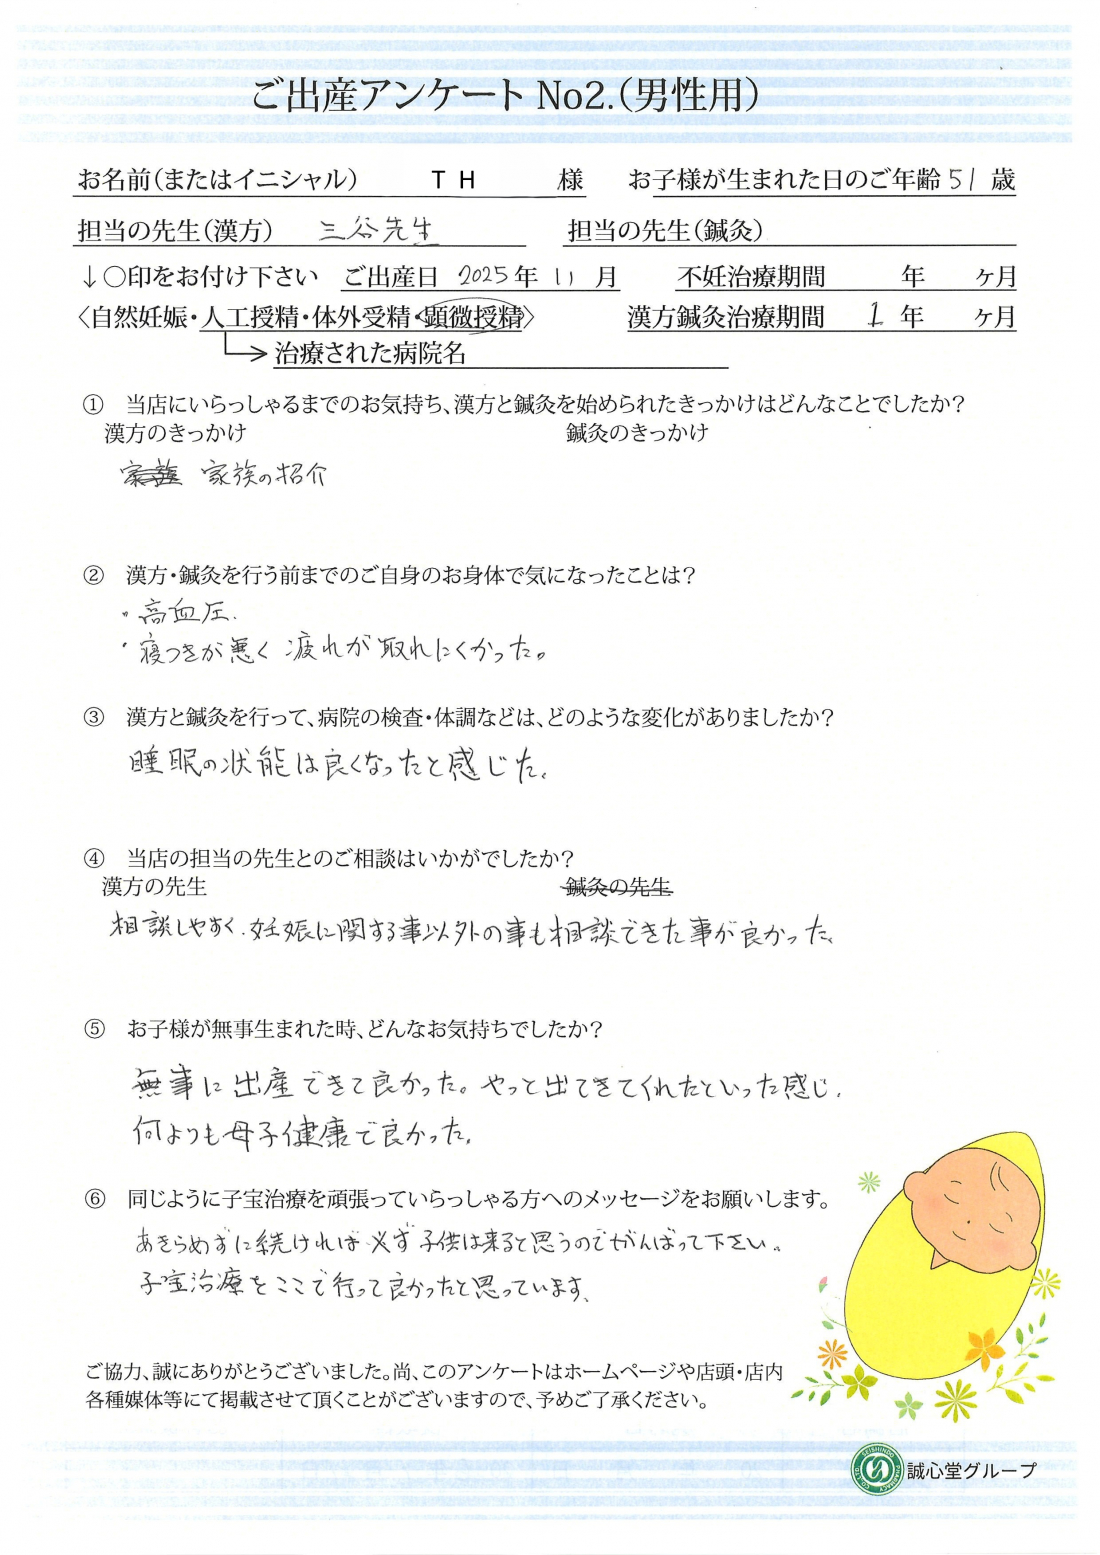 ご出産アンケート No2.(男性用)
お名前(またはイニシャル) TH 様 お子様が生まれた日のご年齢 51 歳
担当の先生(漢方) 三谷先生 担当の先生(鍼灸)
↓○印をお付け下さい ご出産日 2025年 11 月 不妊治療期間 年 ヶ月
〈自然妊娠・人工授精・体外受精・顕微授精〉 漢方鍼灸治療期間 1 年 ヶ月
治療された病院名
① 当店にいらっしゃるまでのお気持ち、漢方と鍼灸を始められたきっかけはどんなことでしたか?
漢方のきっかけ 鍼灸のきっかけ
家族 家族の招介
② 漢方・鍼灸を行う前までのご自身のお身体で気になったことは?
・高血圧.
・寝つきが悪く 疲れが取れにくかった。
③ 漢方と鍼灸を行って、病院の検査・体調などは、どのような変化がありましたか?
睡眠の状態は良くなったと感じた。
④ 当店の担当の先生とのご相談はいかがでしたか?
漢方の先生 鍼灸の先生
相談しやすく、妊娠に関する事以外の事も相談できた事が良かった。
⑤ お子様が無事生まれた時、どんなお気持ちでしたか?
無事に出産できて良かった。やっと出てきてくれたといった感じ.
何よりも母子健康で良かった。
⑥ 同じように子宝治療を頑張っていらっしゃる方へのメッセージをお願いします。
あきらめずに続ければ必ず子供は来ると思うのでがんばって下さい。
子宝治療をここで行って良かったと思っています。
ご協力、誠にありがとうございました。尚、このアンケートはホームページや店頭・店内
各種媒体等にて掲載させて頂くことがございますので、予めご了承ください。
SEISHINDO PHARMACY CO.,LTD.
誠心堂グループ